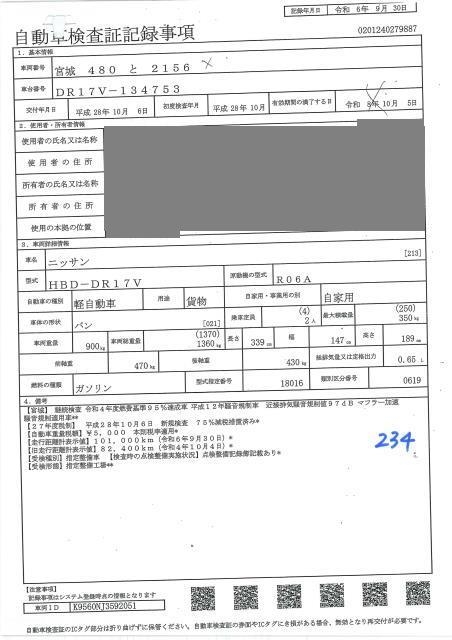 記録年月日 令和 6年 9月 30日
自動車検査証記録事項
0201240279887
1. 基本情報
車両番号 宮城 480 と 2156
車台番号 DR17V-134753
交付年月日 平成 28年 10月 6日 初度検査年月 平成 28年 10月 有効期間の満了する日 令和 8年 10月 5日
2. 使用者・所有者情報
使用者の氏名又は名称
使用者の住所
所有者の氏名又は名称
所有者の住所
使用の本拠の位置
3. 車両詳細情報
車名 ニッサン [213]
型式 HBD-DR17V 原動機の型式 R06A
自動車の種別 軽自動車 用途 貨物 自家用・事業用の別 自家用
車体の形状 バン [021] 乗車定員 (4) 2人 最大積載量 (250) 350kg
車両重量 900kg 車両総重量 (1370) 1360kg 長さ 339cm 幅 147cm 高さ 189cm
前軸重 470kg 後軸重 430kg 総排気量又は定格出力 0.65 L
燃料の種類 ガソリン 型式指定番号 18016 類別区分番号 0619
4. 備考
【宮城】 継続検査 令和4年度燃費基準95%達成車 平成12年騒音規制車 近接排気騒音規制値97dB マフラー加速
騒音規制適用車**
【27年度税制】 平成28年10月6日 新規検査 75%減税措置済み*
【自動車重量税額】¥5,000 本則税率適用*
【走行距離計表示値】101,000km(令和6年9月30日)*
【旧走行距離計表示値】82,400km(令和4年10月4日)*
【受検種別】指定整備車 【検査時の点検整備実施状況】点検整備記録簿記載あり*
【受検形態】指定整備工場**
234
【注意事項】
記録事項はシステム登録時点の情報となります
車両ID K9560NJ3592051
自動車検査証のICタグ部分は折り曲げずに保管ください。自動車検査証の券面やICタグにき損がある場合、無効となり再交付が必要です。